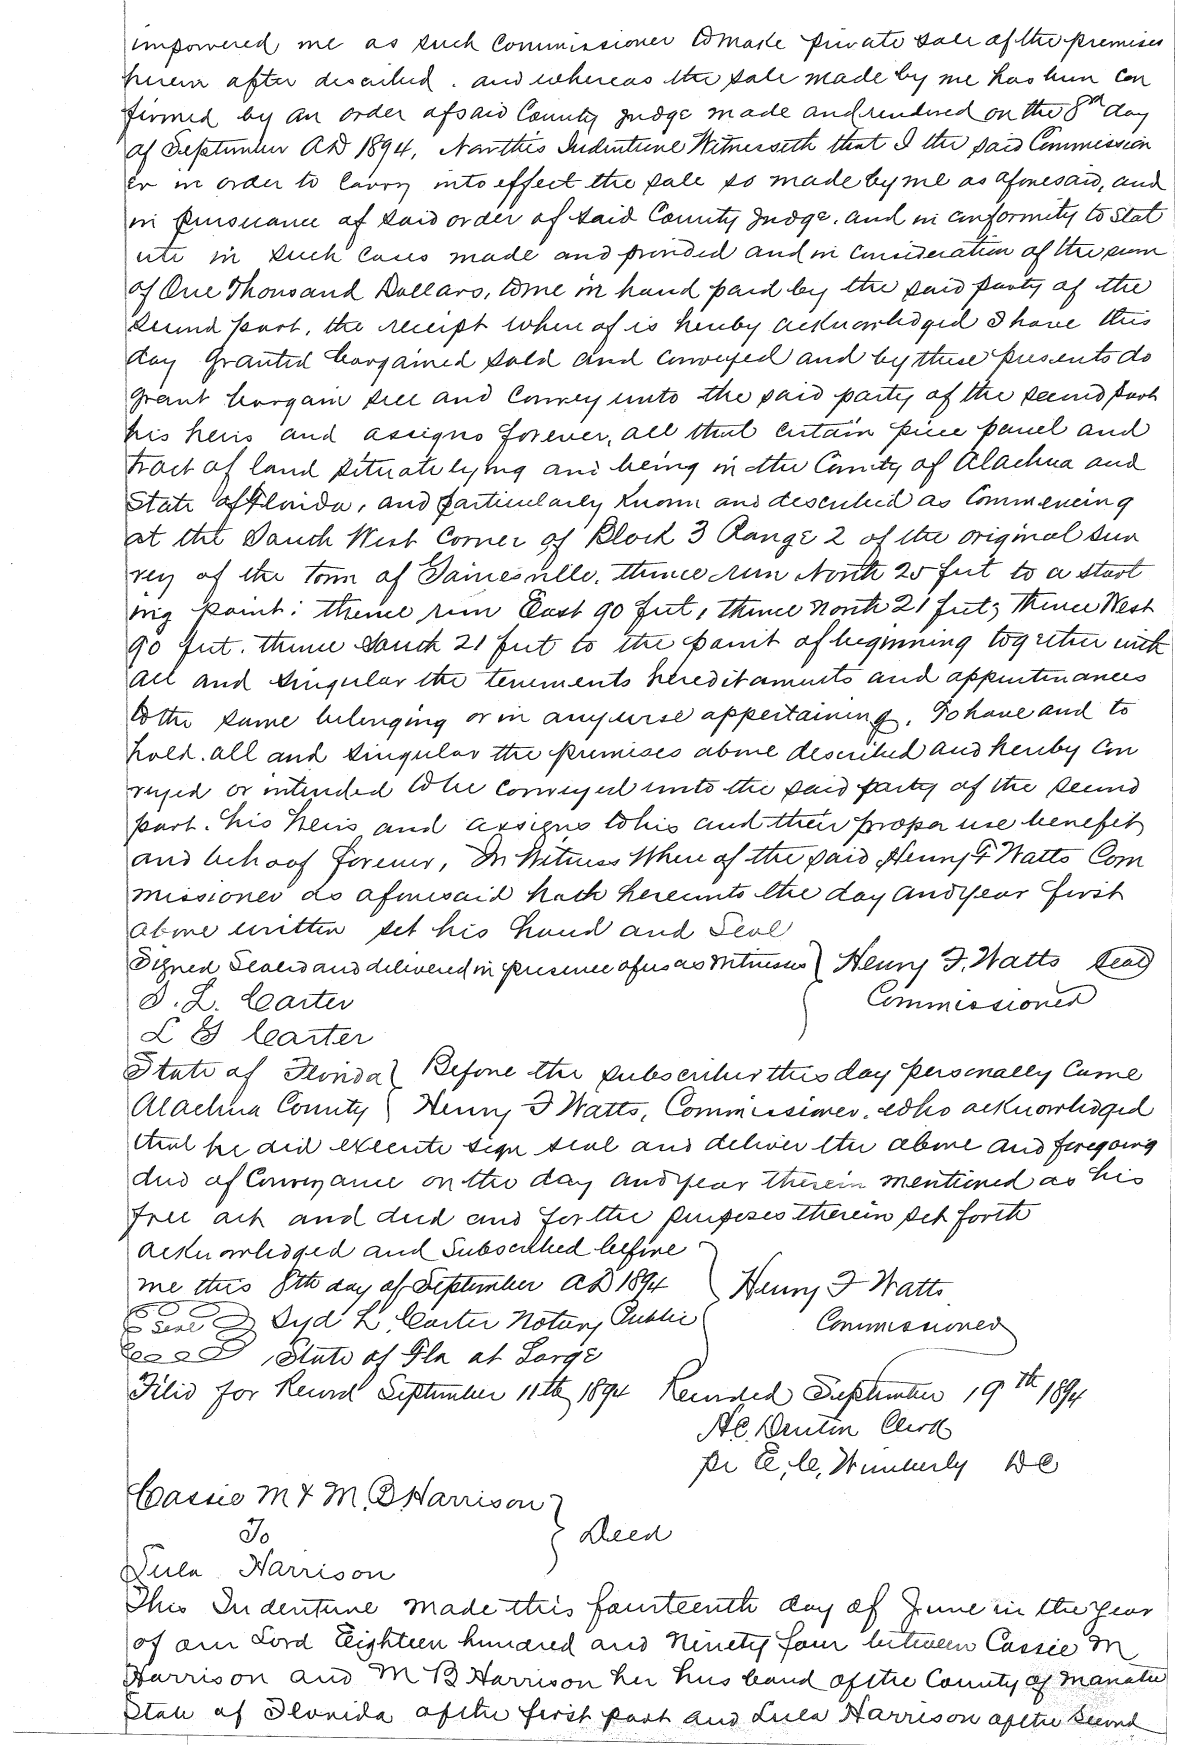 impowered me as such Commissioner to make private sale of the premises
herein after described. and whereas the sale made by me has been con
firmed by an order of said County Judge made and rendered on the 8th day
of September AD 1894, Now this Indenture Witnesseth that I the said Commission
er in order to carry into effect the sale so made by me as aforesaid, and
in pursuance of said order of said County Judge. and in conformity to Stat
ute in such cases made and provided and in consideration of the sum
of One Thousand Dollars, to me in hand paid by the said party of the
second part, the receipt where of is hereby acknowledged I have this
day granted bargained sold and conveyed and by these presents do
grant bargain sell and convey unto the said party of the second part
his heirs and assigns forever, all that certain piece parcel and
tract of land situate lying and being in the County of Alachua and
State of Florida, and particularly known and described as Commencing
at the South West Corner of Block 3 Range 2 of the original sur
vey of the town of Gainesville. thence run North 25 feet to a start
ing point: thence run East 90 feet, thence North 21 feet; thence West
90 feet. thence South 21 feet to the point of beginning together with
all and singular the tenements hereditaments and appurtenances
to the same belonging or in anywise appertaining. To have and to
hold. all and singular the premises above described and hereby con
veyed or intended to be conveyed unto the said party of the second
part. his heirs and assigns to his and their proper use benefit
and behoof forever, In Witness Where of the said Henry F Watts Com
missioner as aforesaid hath hereunto the day and year first
above written set his hand and Seal
Signed Sealed and delivered in presence of us as witnesses } Henry F. Watts Seal
S. L. Carter Commissioner
L G Carter
State of Florida } Before the subscriber this day personally came
Alachua County { Henry F Watts, Commissioner. who acknowledged
that he did execute sign seal and deliver the above and foregoing
deed of Conveyance on the day and year therein mentioned as his
free act and deed and for the purposes therein set forth
acknowledged and Subscribed before
me this 8th day of September AD 1894 } Henry F Watts
Seal Syd L. Carter Notary Public Commissioner
State of Fla at Large
Filed for Record September 11th 1894 Recorded September 19th 1894
H.C. Denton Clerk
pr E. C. Wimberly DC
Cassie M & M. B Harrison }
To } Deed
Lula Harrison
This Indenture made this fourteenth day of June in the year
of our Lord Eighteen hundred and Ninety four between Cassie M
Harrison and M B Harrison her husband of the County of Manatee
State of Florida of the first part and Lula Harrison of the Second